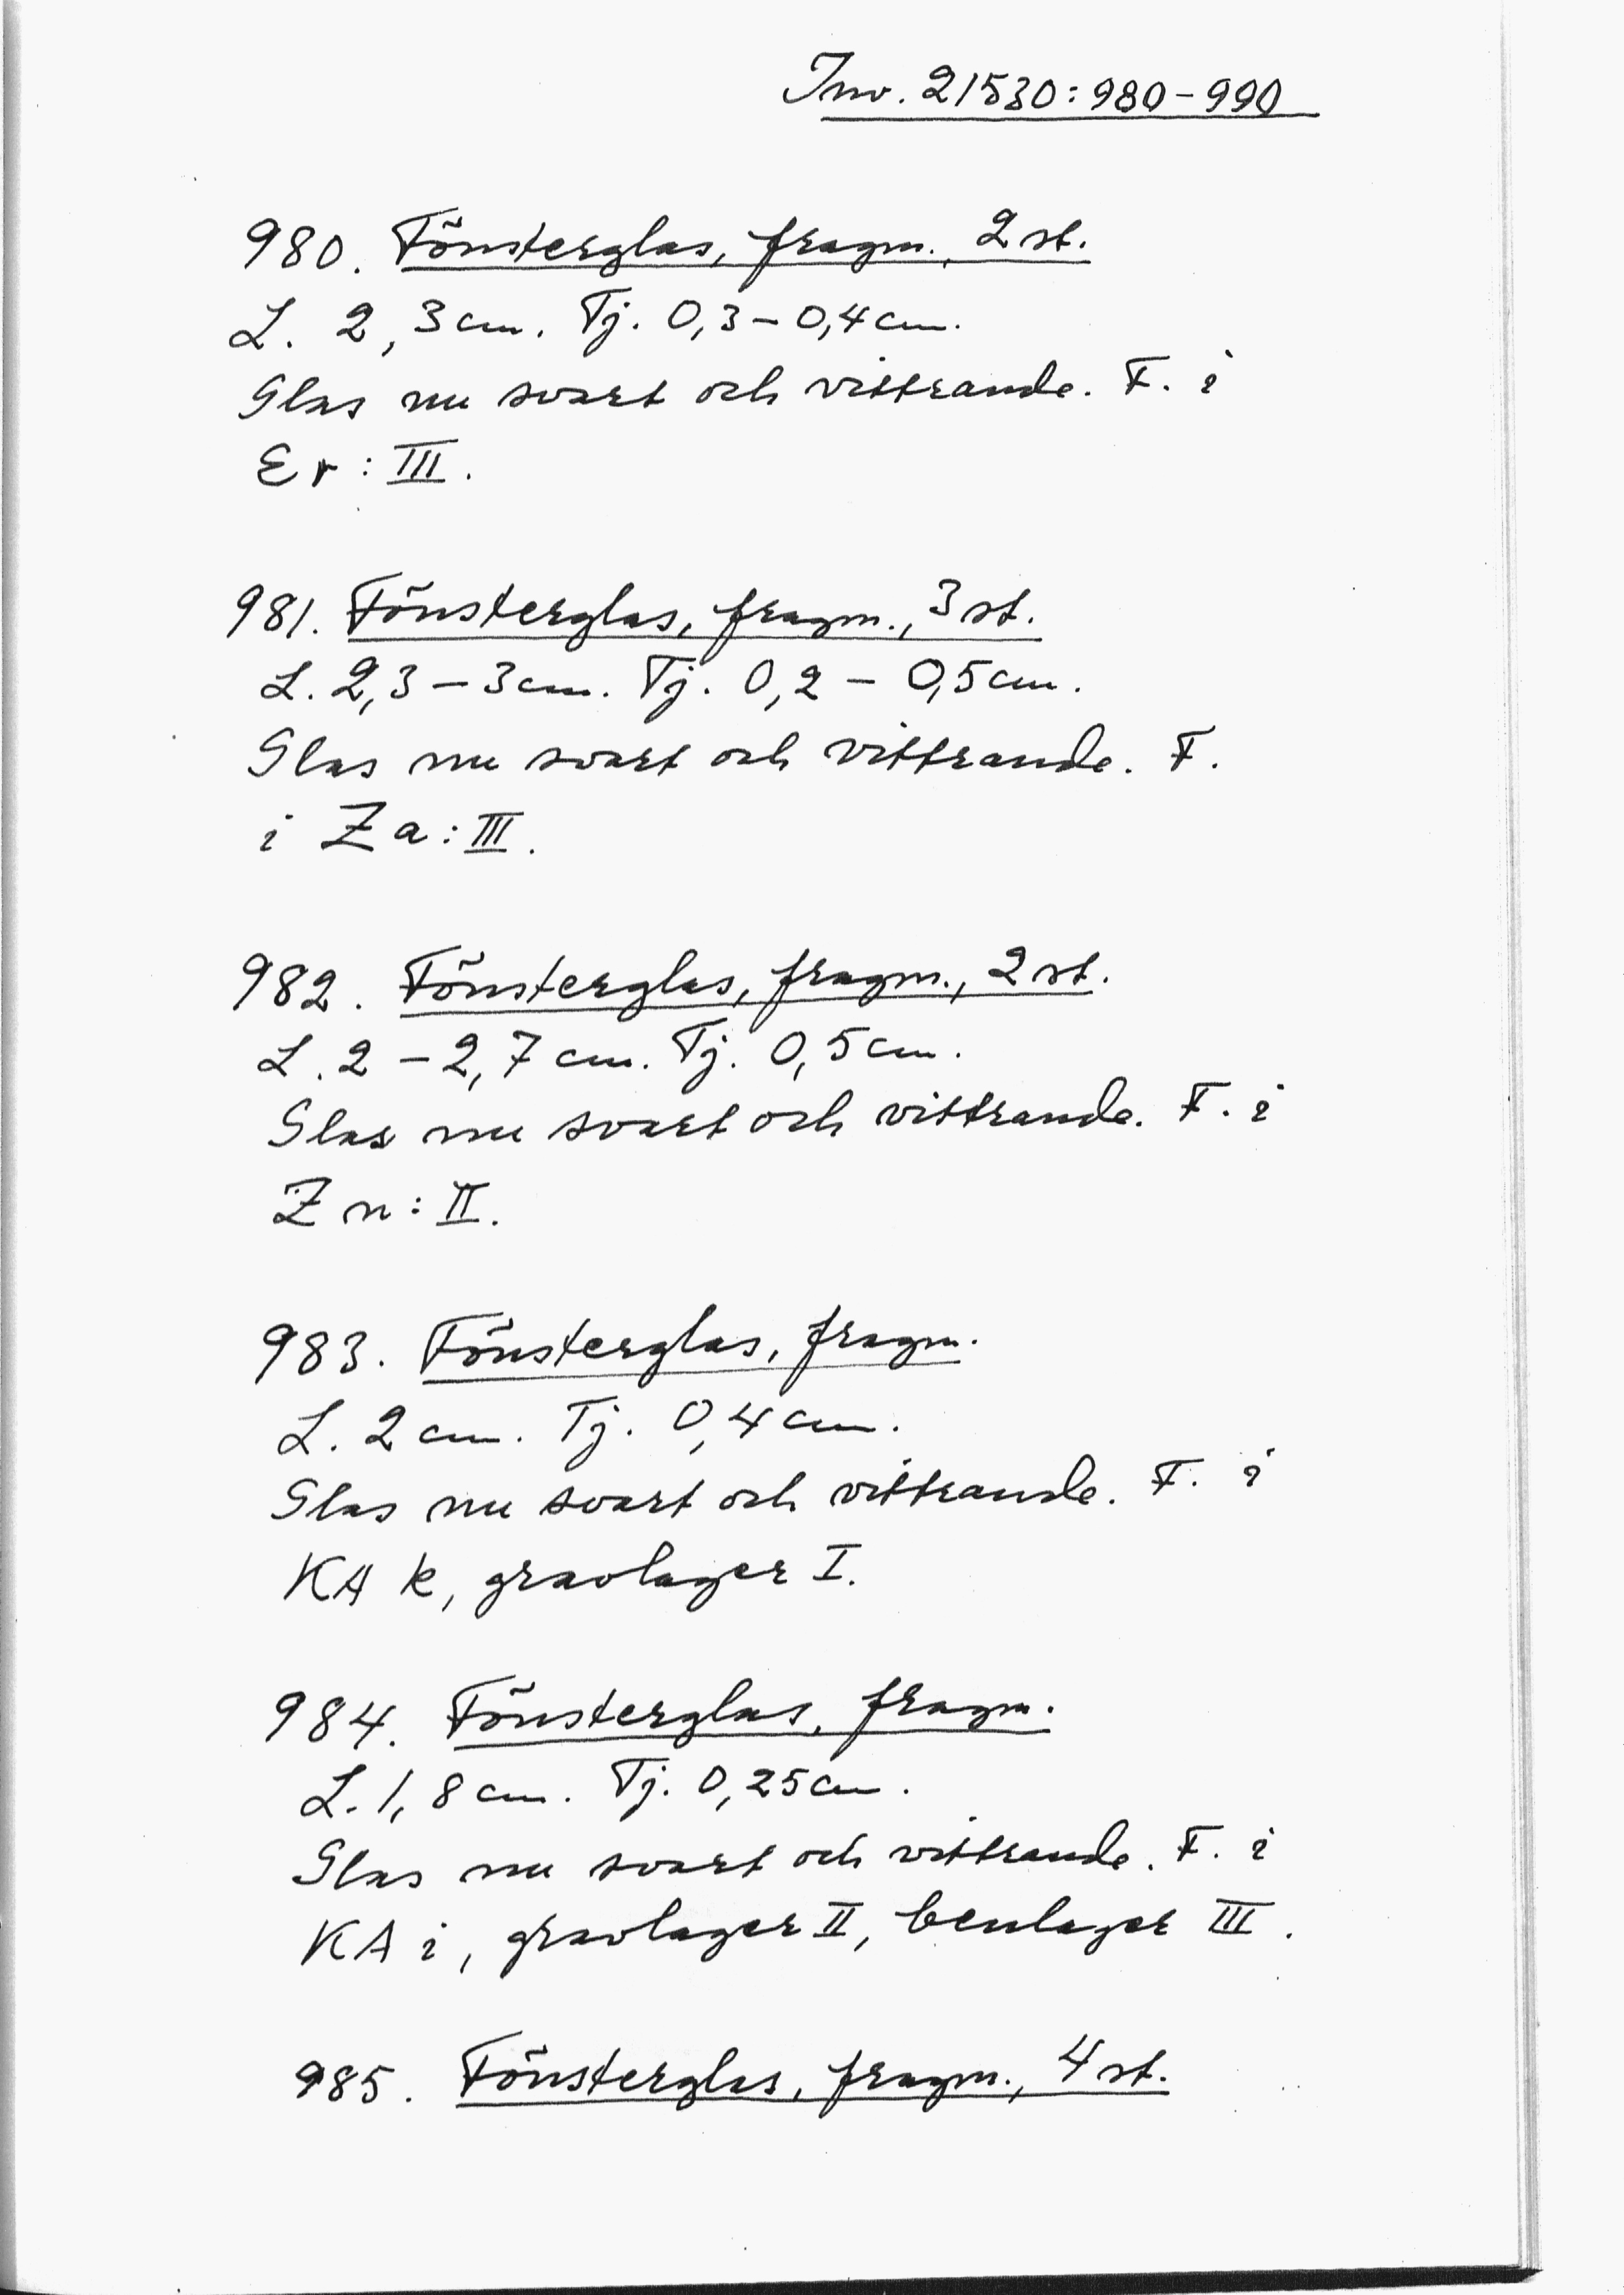 Inv. 21530:980-990
980. Fönsterglas, fragm., 2 st.
L. 2,3 cm. Tj. 0,3-0,4 cm.
Glas nu svart och vittrande. F. i
Er: III.
981. Fönsterglas, fragm., 3 st.
L. 2,3-3 cm. Tj. 0,2-0,5 cm.
Glas nu svart och vittrande. F.
i Za: III.
982. Fönsterglas, fragm., 2 st.
L. 2-2,7 cm. Tj. 0,5 cm.
Glas nu svart och vittrande. F. i
Zn: II.
983. Fönsterglas, fragm.
L. 2 cm. Tj. 0,4 cm.
Glas nu svart och vittrande. F. i
KA k, gravlager I.
984. Fönsterglas, fragm.
L. 1,8 cm. Tj. 0,25 cm.
Glas nu svart och vittrande. F. i
KA i, gravlager II, benlager III.
985. Fönsterglas, fragm., 4 st.